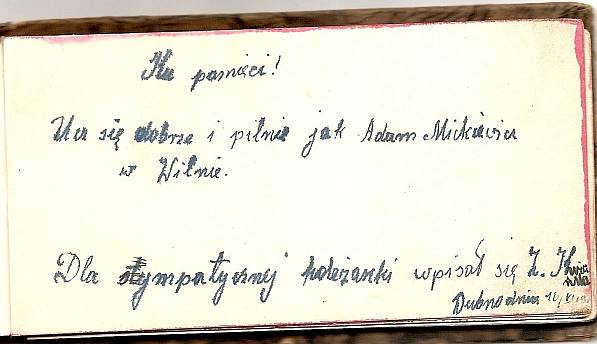 Ku pamięci!
Ucz się dobrze i pilnie jak Adam Mickiewicz
w Wilnie.
Dla sympatycznej koleżanki wpisał się Z.
Dubno dnia